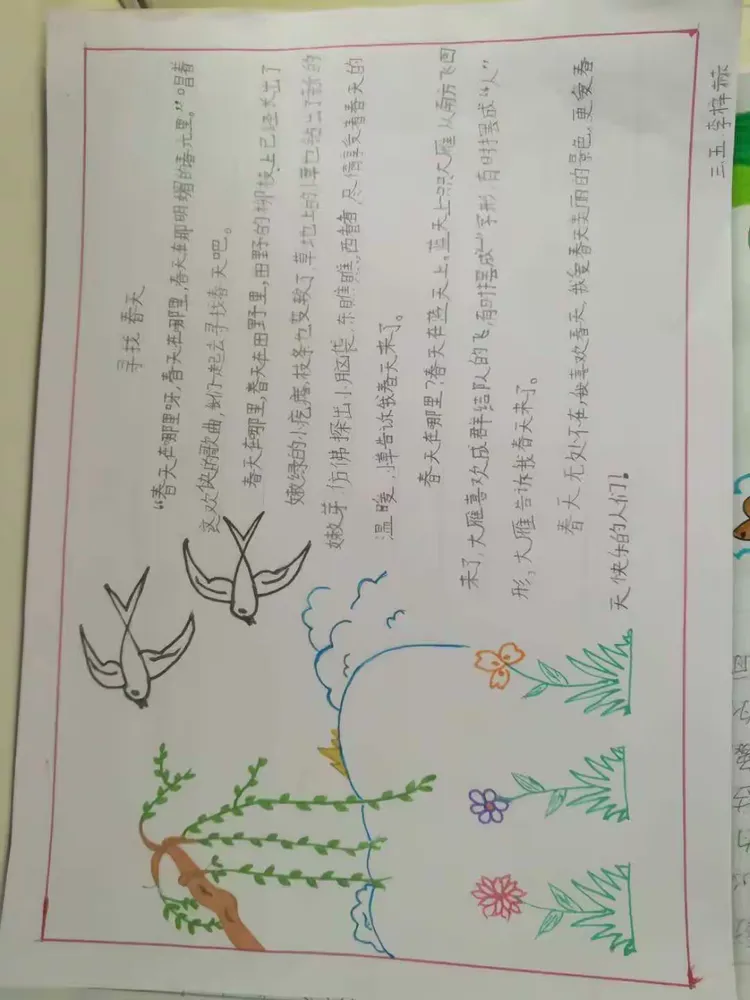 寻找春天
“春天在哪里呀,春天在哪里,春天在那明媚的春光里。”唱着
这欢快的歌曲,我们一起去寻找春天吧。
春天在哪里,春天在田野里,田野的柳枝上已经长出了
嫩绿的小疙瘩,枝条也变软了,草地上的小草也冒出了新的
嫩芽,仿佛探出小脑袋,东瞧瞧,西看看,尽情享受着春天的
温暖,小草告诉我春天来了。
春天在哪里?春天在蓝天上。蓝天上一只只大雁从南方飞回
来了,大雁喜欢成群结队的飞,有时摆成“一”字形,有时摆成“人”
形,大雁告诉我春天来了。
春天无处不在,我喜欢春天,我爱春天美丽的景色,更爱春
天快乐的人们!
三五 李梓